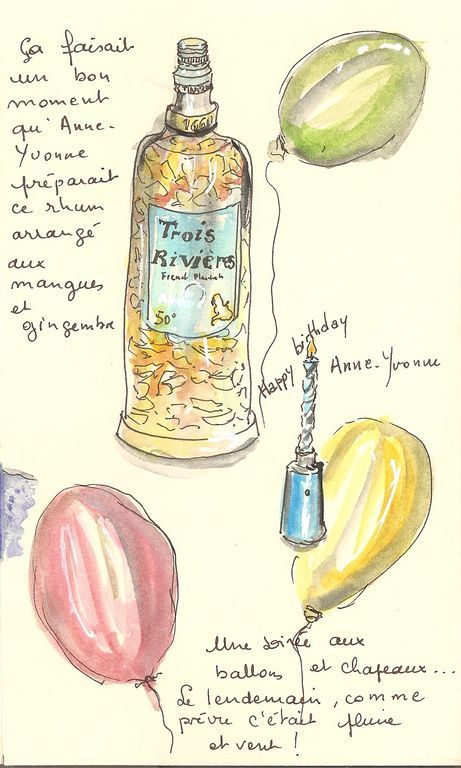 Ça faisait
un bon
moment
qu'Anne-
Yvonne
préparait
ce rhum
arrangé
aux
mangues
et
gingembre
1660
Trois
Rivières
50°
Happy birthday
Anne-Yvonne
Une soirée aux
ballons et chapeaux...
Le lendemain, comme
prévu c'était pluie
et vent !